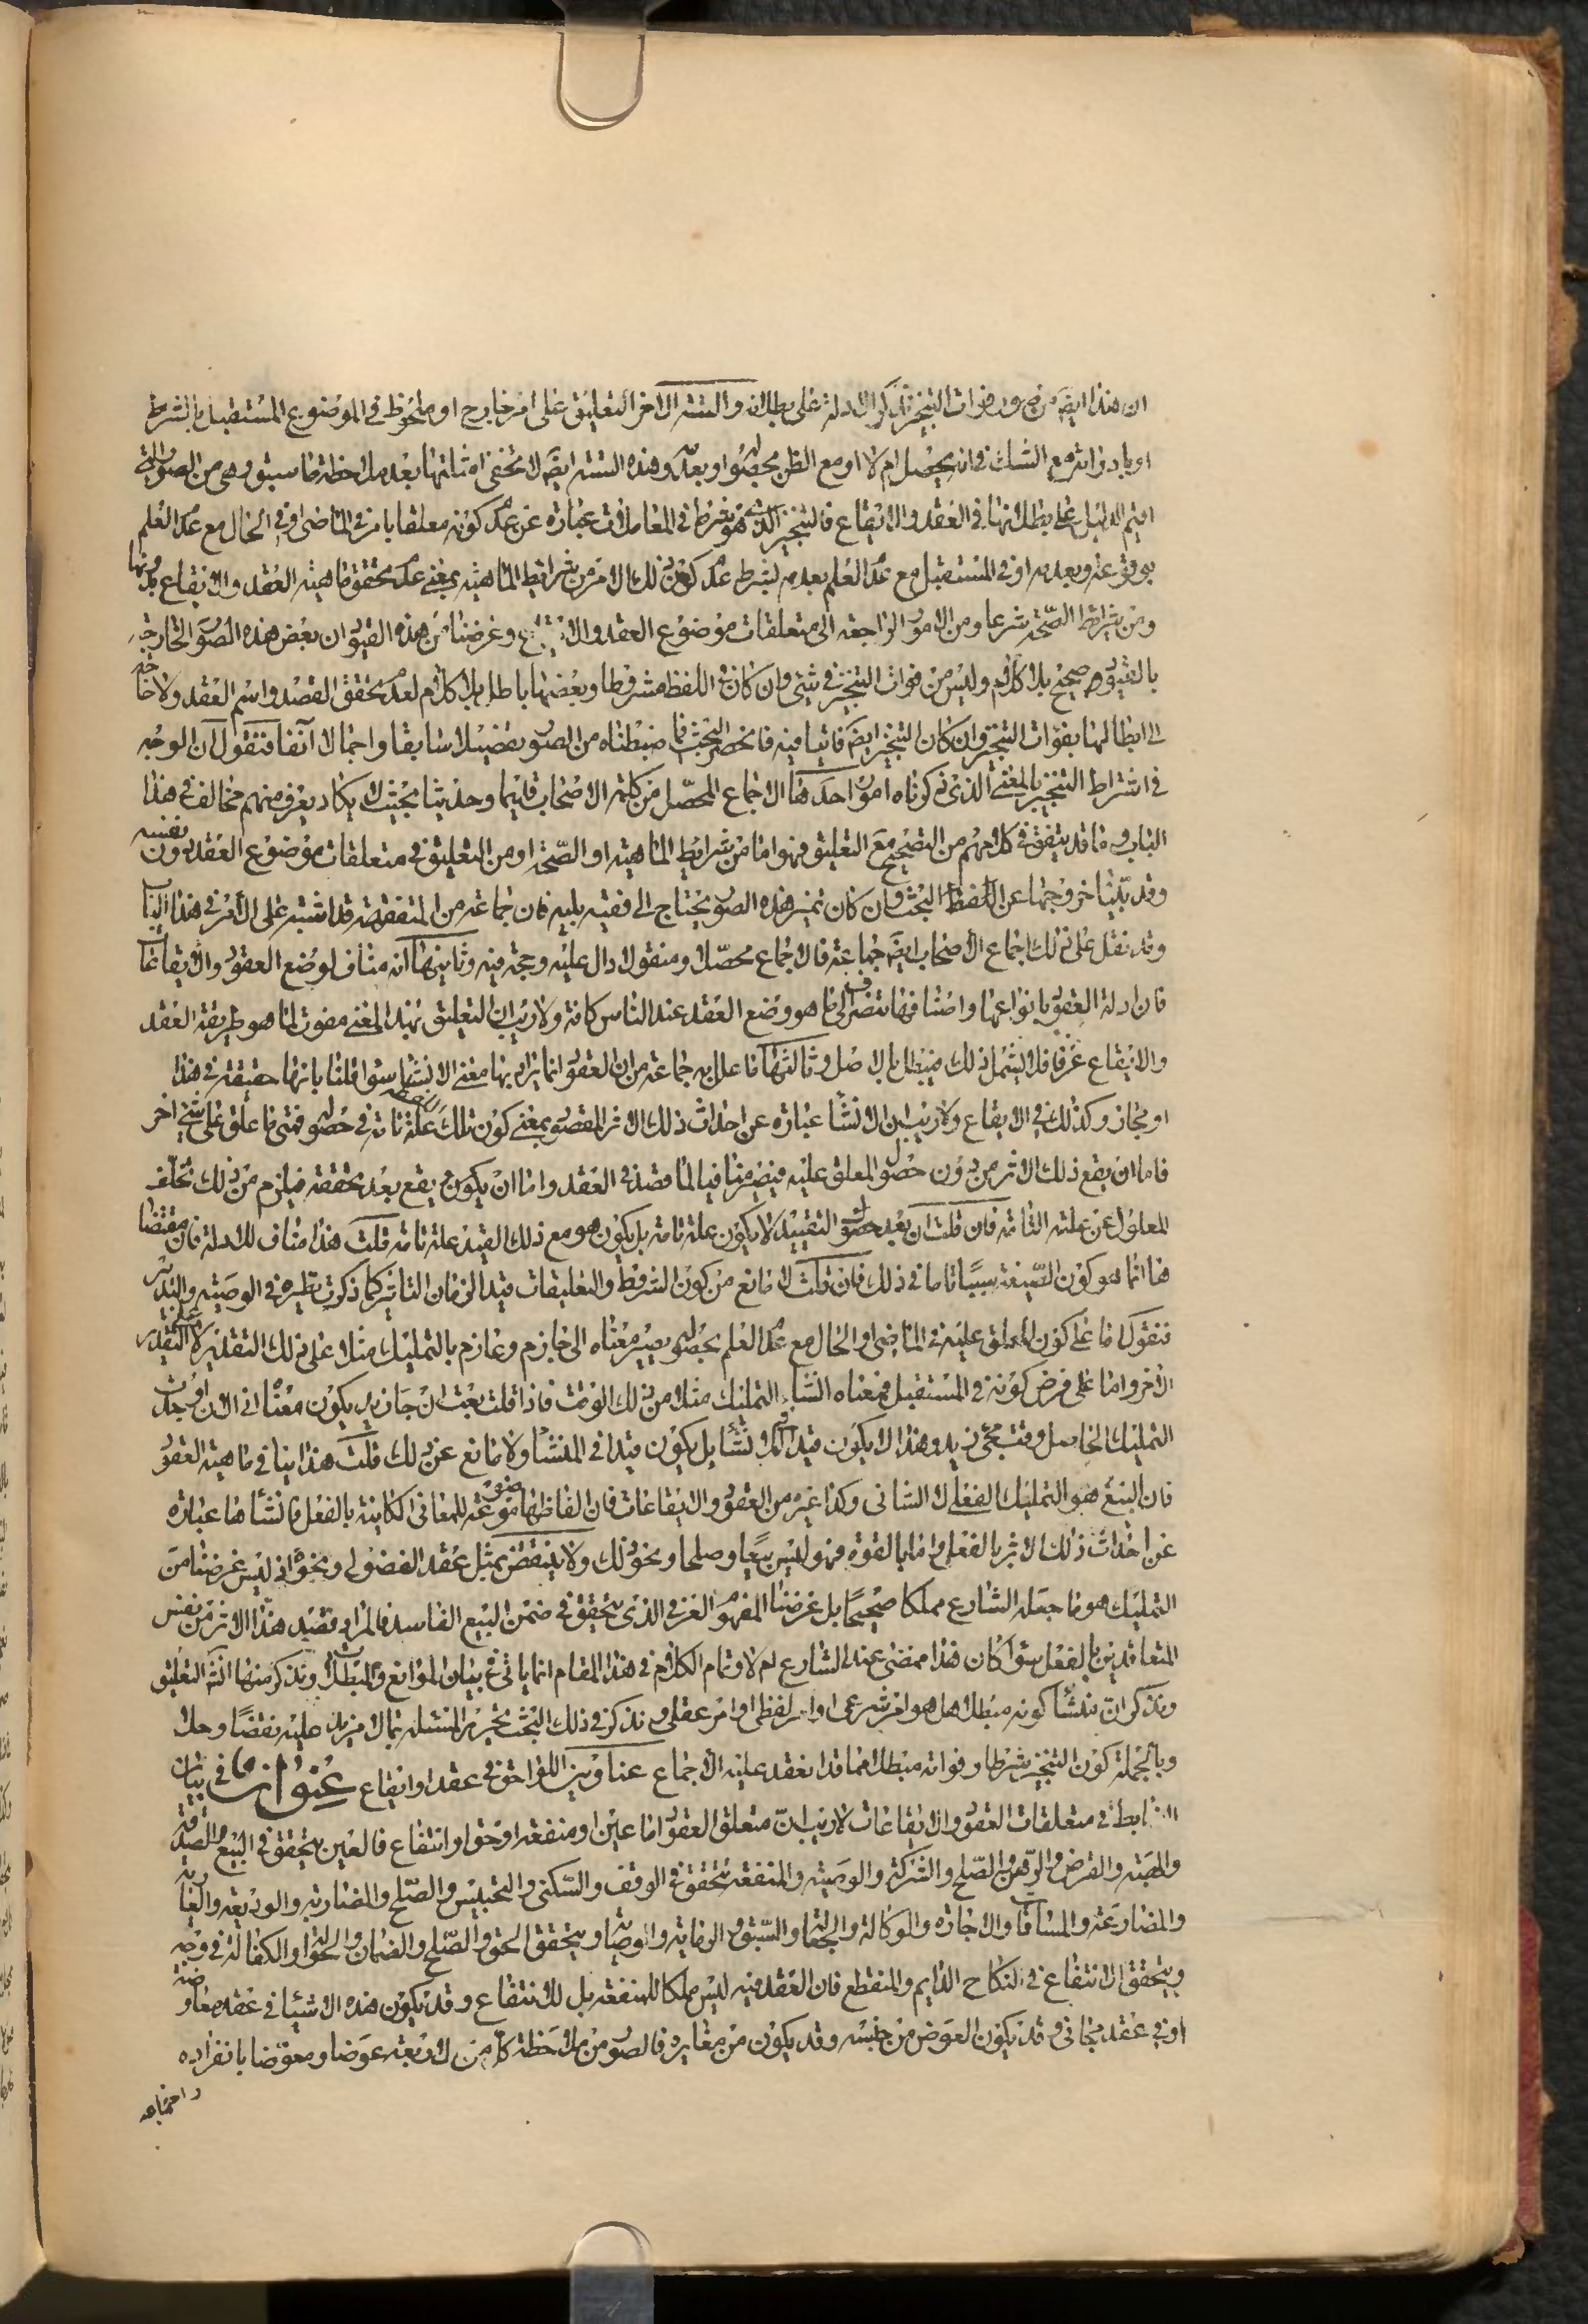 ان هذا ايضا من فوات التنجيز نذكر الادلة على بطلانه والستة الاخر التعليق على امر خارج او ملحوظ في الموضوع المستقبل بالشرط
او بادواته مع الشك في انه يحصل ام لا او مع الظن بحصوله او بعدمه وهذه الستة ايضا لا تخفى امثلتها بعد ملاحظة ما سبق وهي من الصور التي
اقيم الدليل على بطلانها في العقد والايقاع فالتنجيز الذي هو شرط في المعاملات عبارة عن عدم كونه معلقا بامر في الماضي او في الحال مع عدم العلم
بوقوعه وبعدمه او في المستقبل مع عدم العلم بعدمه بشرط عدم كون ذلك الامر من شرايط الماهية بمعنى عدم تحقق ماهية العقد والايقاع بدونها
ومن شرايط الصحة شرعا ومن الامور الراجعة الى متعلقات موضوع العقد والايقاع وغرضنا من هذه القيود ان بعض هذه الصور الخارجة
بالقيود صحيح بلا كلام وليس من فوات التنجيز في شئ وان كان في اللفظ مشروطا وبعضها باطل بلا كلام لعدم تحقق القصد واسم العقد ولا حاجة
الى ابطالها بفوات التنجيز وان كان التنجيز ايضا فائتا فيه فانحصر البحث فيما ضبطناه من الصور تفصيلا سابقا واجمالا آنفا فنقول ان الوجه
في اشتراط التنجيز بالمعنى الذي ذكرناه امور احدها الاجماع المحصل من كلمة الاصحاب قديما وحديثا بحيث لا يكاد يعرف منهم مخالف في هذا
الباب وما قد يتفق في كلامهم من التصحيح مع التعليق فهو اما من شرايط الماهية او الصحة او من التعليق في متعلقات موضوع العقد دون نفسه
وقد بينا خروجها عن البحث وان كان تميز هذه الصور يحتاج الى فقيه نبيه فان جماعة من المتفقهة قد اشتبه عليه الامر في هذا الباب
وقد نقل على ذلك اجماع الاصحاب ايضا جماعة فالاجماع محصلا ومنقولا دال عليه وحجة فيه وثانيها انه مناف لوضع العقود والايقاعات
فان ادلة العقود بانواعها واصنافها تنصرف الى ما هو وضع العقد عند الناس كافة ولا ريب ان التعليق بهذا المعنى مفوت لما هو طريقة العقد
والايقاع عرفا فلا يشمل ذلك فيبطل بالاصل وثالثها ما علل به جماعة من ان العقود انما يراد بها معنى الانشاء سواء قلنا بانها حقيقة في هذا
او مجاز وكذلك في الايقاع ولا ريب ان الانشا عبارة عن احداث ذلك الاثر المقصود بمعنى كون تلك علة تامة في حصوله فمتى ما علق على شئ اخر
فاما ان يقع ذلك الاثر من دون حصول المعلق عليه فيصير منافيا لما قصد في العقد واما ان يكون يقع بعد تحققه فيلزم من ذلك تخلف
المعلول عن علته التامة فان قلت ان بعد حصول التقييد لا يكون علة تامة بل يكون هو مع ذلك القيد علة تامة قلت هذا مناف للادلة فان مقتضا
ها انما هو كون الصيغة سببا تاما في ذلك فان قلت لا مانع من كون الشروط والتعليقات قيدا لزمان التاثير كما ذكرت نظيره في الوصية والتدبير
فنقول اما على كون المعلق عليه في الماضي او الحال مع عدم العلم بحصوله يصير معناه الى جازم وعازم بالتمليك مثلا على ذلك التقدير لا على التقدير
الاخر واما على فرض كونه في المستقبل فمعناه انشاء التمليك مثلا من ذلك الوقت فاذا قلت بعت ان جاء زيد يكون معناه اني الان اوجدت
التمليك الحاصل وقت مجئ زيد وهذا لا يكون قيدا في الانشا بل يكون قيدا في المنشا ولا مانع عن ذلك قلت هذا ينافي ماهية العقود
فان البيع هو التمليك الفعلي لا الشاني وكذا غيره من العقود والايقاعات فان الفاظها موضوعة للمعاني الكاينة بالفعل فانشاها عبارة
عن احداث ذلك الاثر بالفعل واما بالقوة فهو ليس بيعا وصلحا ونحو ذلك ولا ينتقض بمثل عقد الفضولي ونحوه اذ ليس غرضنا من
التمليك هو ما جعله الشارع مملكا صحيحا بل غرضنا المفهوم العرفي الذي يتحقق في ضمن البيع الفاسد فالمراد قصد هذا الاثر من نفس
المتعاقدين بالفعل سواء كان هذا ممضى عند الشارع ام لا وتمام الكلام في هذا المقام انما ياتي في بيان الموانع والمبطلات ونذكر منها انشاء التعليق
ونذكر ان منشأ كونه مبطلا هل هو امر شرعي او امر لفظي او امر عقلي ونذكر في ذلك البحث تحرير المسئلة بما لا مزيد عليه نقضا وحلا
وبالجملة كون التنجيز شرطا وفواته مبطلا مما قد انعقد عليه الاجماع عنا وبين اللواحق في عقد او ايقاع عنوان في بيان
الضابط في متعلقات العقود والايقاعات لا ريب ان متعلق العقود اما عين او منفعة او حق او انتفاع فالعين يتحقق في البيع والصدقة
والهبة والقرض والرهن والصلح والشركة والوصية والمنفعة يتحقق في الوقف والسكنى والتحبيس والصلح والمضاربة والوديعة والعارية
والمضارعة والمساقات والاجارة والوكالة والجعالة والسبق والرماية والوصية ويتحقق الحق في الصلح والضمان والحوالة والكفالة في وجه
ويتحقق الانتفاع في النكاح الدايم والمنقطع فان العقد فيه ليس مملكا للمنفعة بل للانتفاع وقد يكون هذه الاشيا في عقد معاوضة
او في عقد مجاني وقد يكون العوض من جنسه وقد يكون من مغايره فالصور من ملاحظة كل من الاربعة عوضا ومعوضا بانفراده
واجتماعه